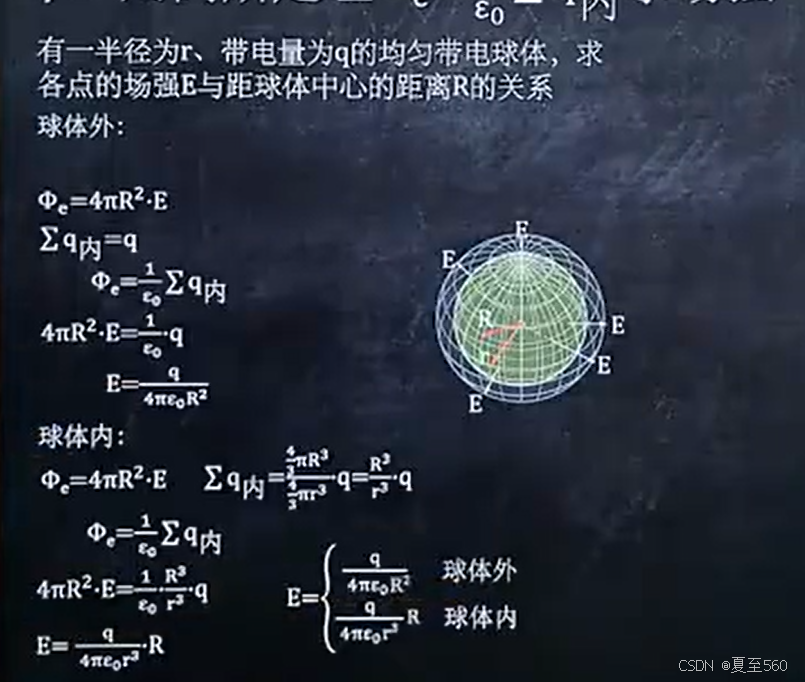 ε₀ 内
有一半径为r、带电量为q的均匀带电球体，求
各点的场强E与距球体中心的距离R的关系
球体外：
Φₑ=4πR²·E
∑q内=q
Φₑ=1/ε₀ ∑q内
4πR²·E=1/ε₀·q
E=q/4πε₀R²
E
E
R
E
r
E
E
球体内：
Φₑ=4πR²·E ∑q内=4/3πR³/4/3πr³·q=R³/r³·q
Φₑ=1/ε₀ ∑q内
4πR²·E=1/ε₀·R³/r³·q
E=q/4πε₀r³·R
E={ q/4πε₀R² 球体外
q/4πε₀r³ R 球体内
CSDN @夏至560